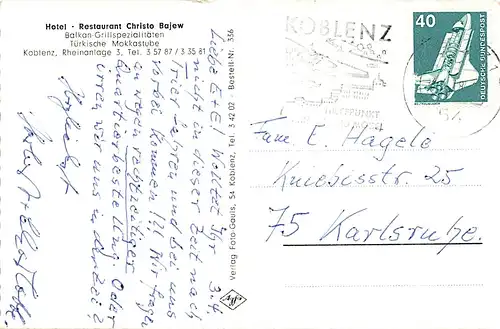 Hotel - Restaurant Christo Bajew
Balkan-Grillspezialitäten
Türkische Mokkastube
Koblenz, Rheinanlage 3, Tel. 3 57 87 / 3 35 81
3.4.
Liebe E+E! Wolltet Ihr
nicht in dieser Zeit nach
Trier fahren und bei uns
vorbei kommen!?! Wir fragen
an wegen rechtzeitiger
Quartierbestellung. Oder
irren wir uns in der Zeit?
Herzlichst
Verlag Foto-Gauls, 54 Koblenz, Tel. 3 42 02 Bestell-Nr. 336
KOBLENZ
54
40
DEUTSCHE BUNDESPOST
Fam. E. Hägele
Kniebisstr. 25
75 Karlsruhe.